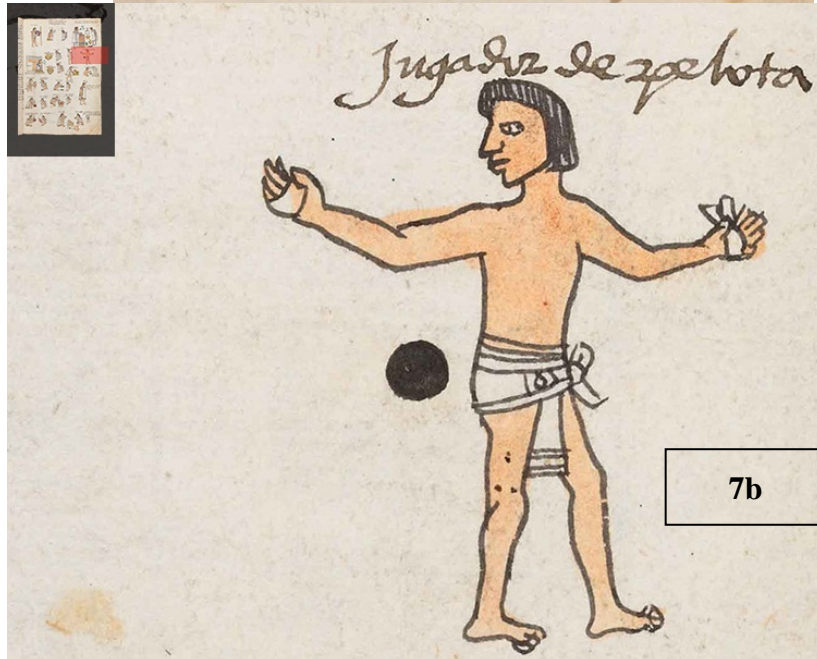 Jugador de pelota
7b